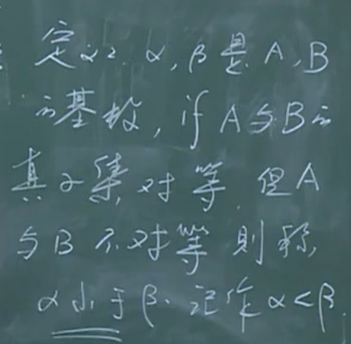 定义2. α,β是A,B
的基数,if A与B的
真子集对等,但A
与B不对等则称
α小于β.记作α<β.